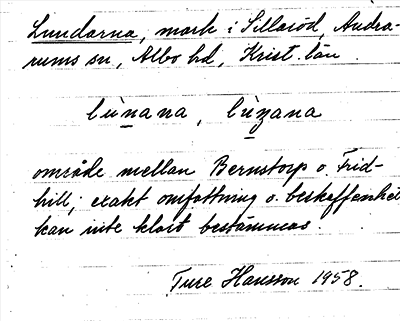 Lundarna, mark i Sillaröd, Andra-
rums sn, Albo hd, Krist. län.
lùnana, lùnana
område mellan Bernstorp o. Frid-
hill; exakt omfattning o. beskaffenhet
kan inte klart bestämmas.
Ture Hansson 1958.